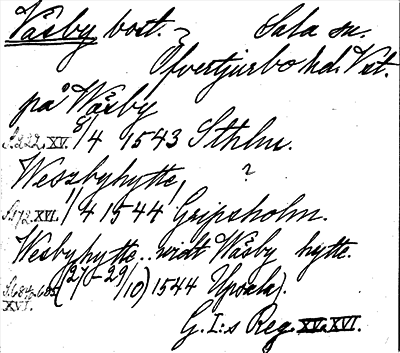 Väsby bost. Sala sn.
Öfvertjurbo hd. Vst.
på Wäsby
S. 222. XV. 8/4 1543 Sthlm.
Weszbyhytte, ?
S. 172. XVI. 1/4 1544 Gripsholm.
Wesbyhytte.. widt Wäsby hytte.
S. 684, 685 (27/ – 29/10) 1544 Upsala).
XVI.
G. I:s Reg. XV. XVI.